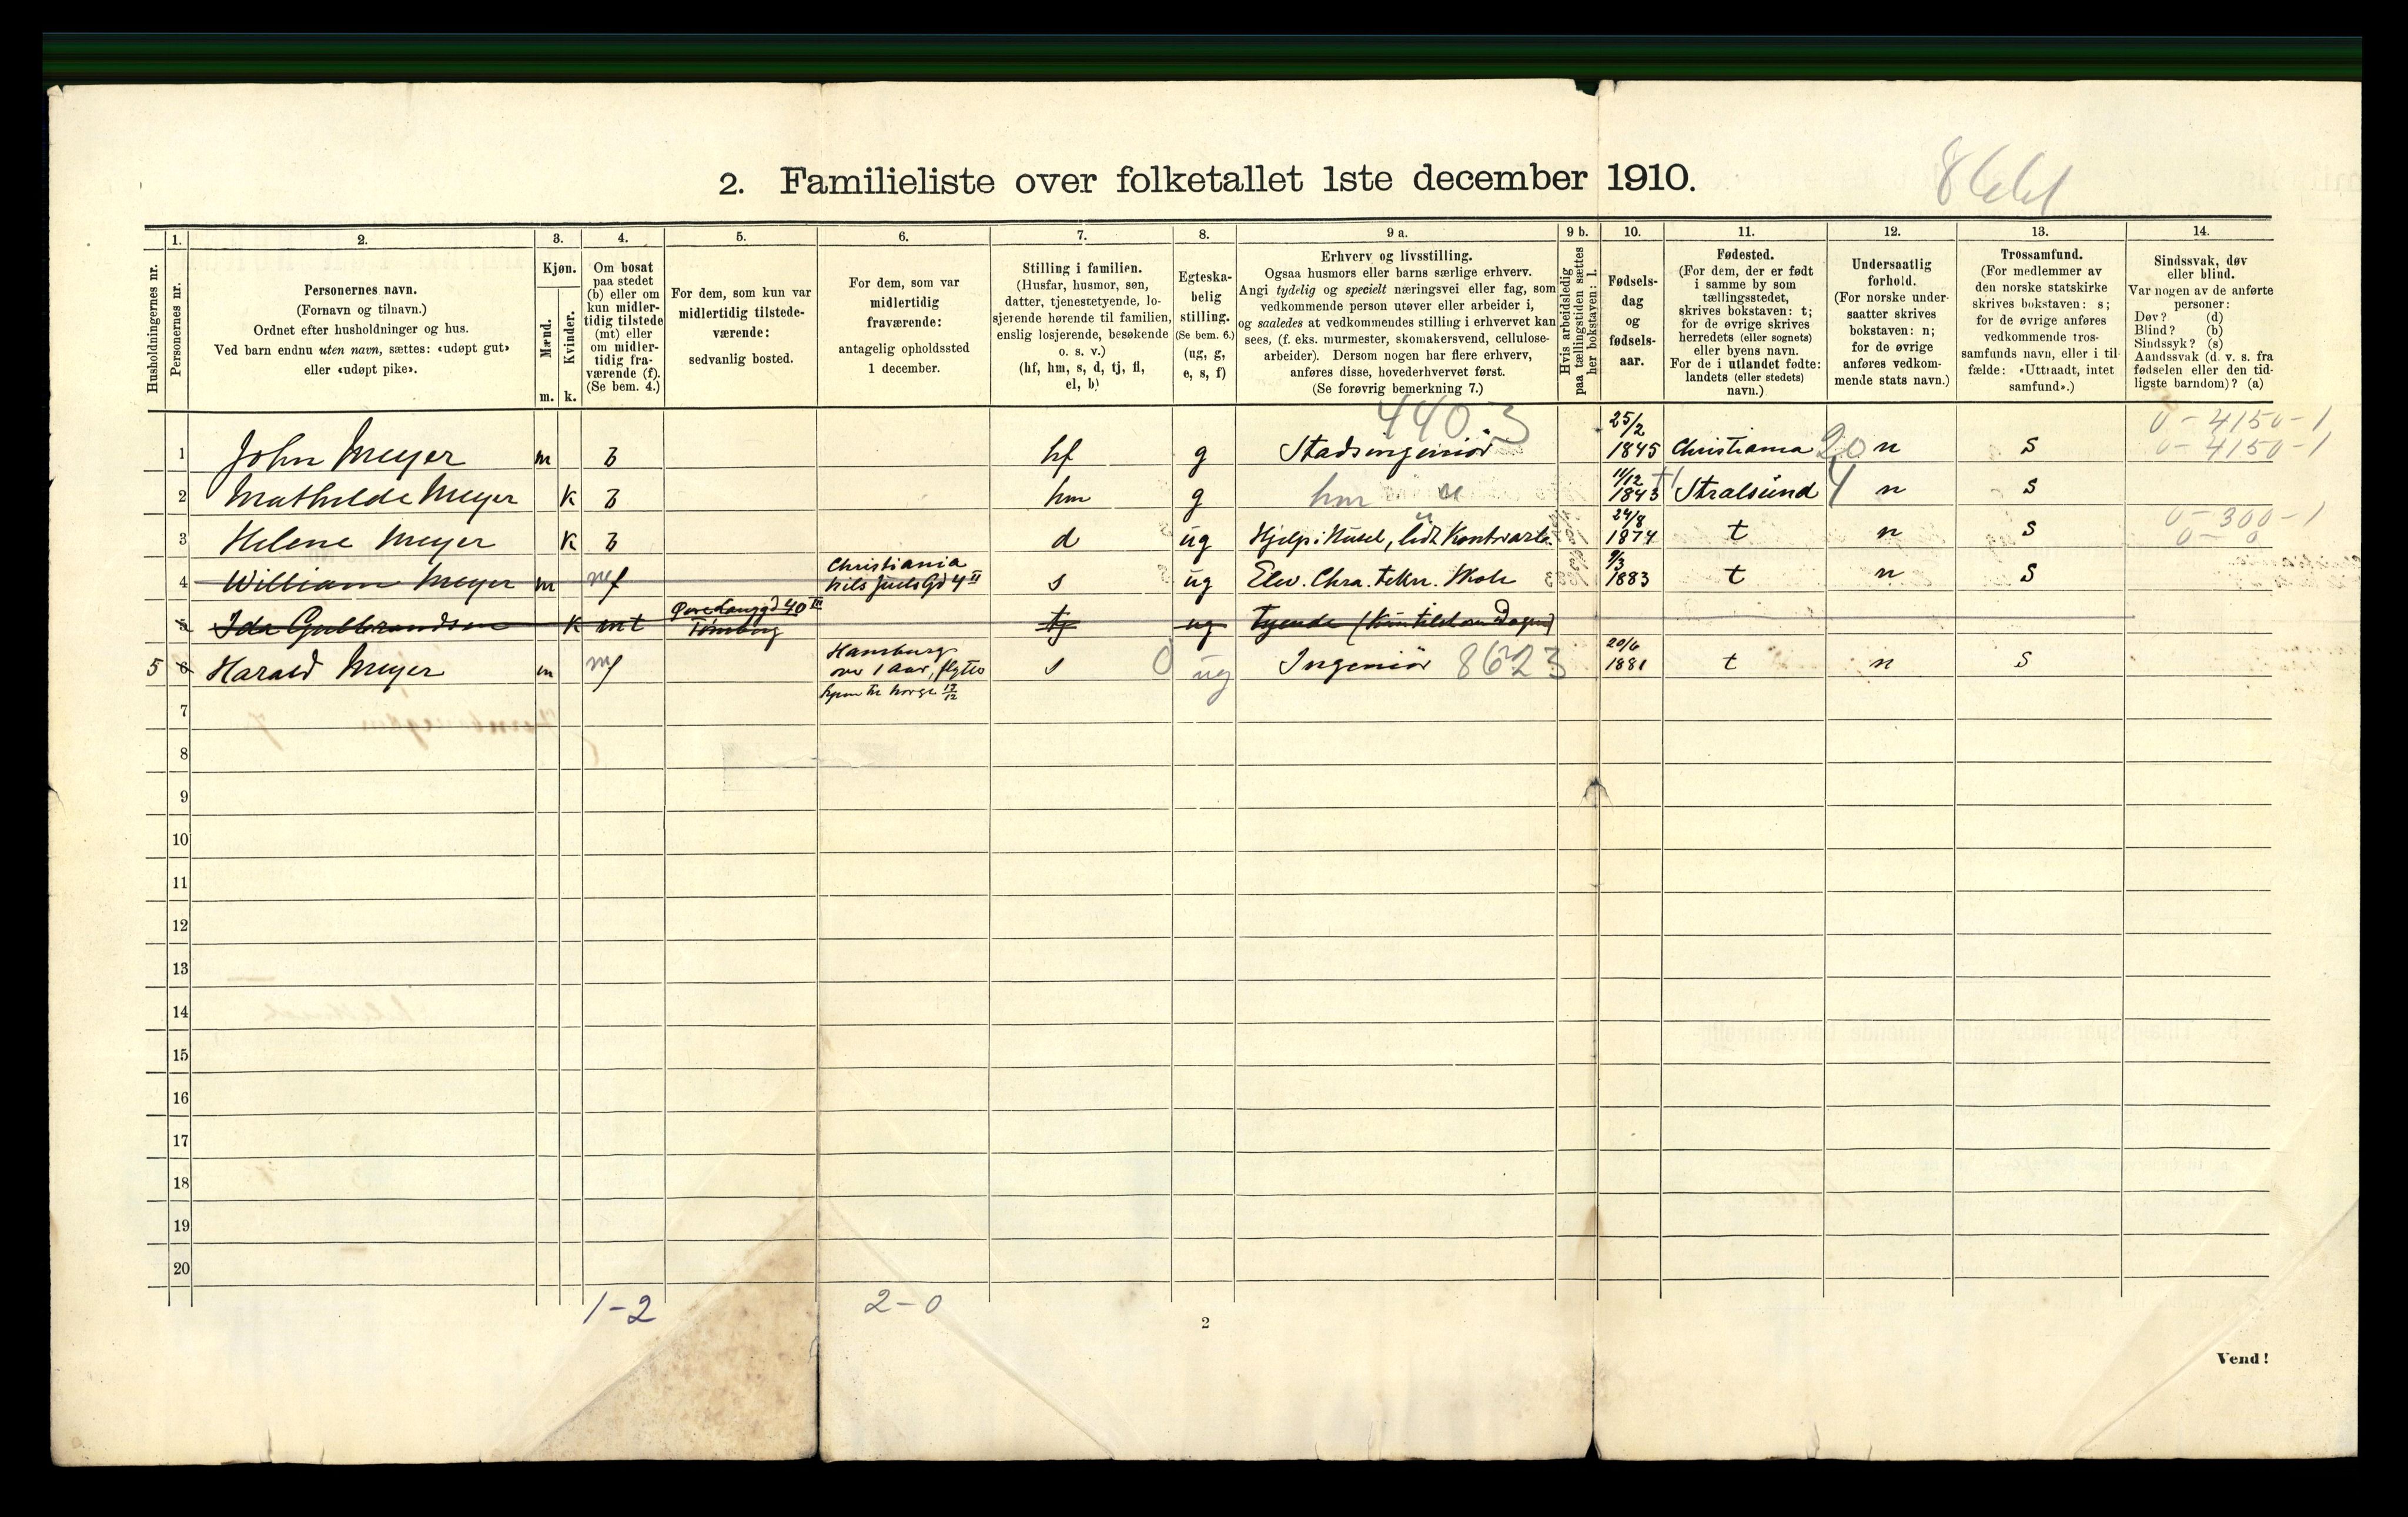 2. Familieliste over folketallet 1ste december 1910.
1. 2. 3. 4. 5. 6. 7. 8. 9 a. 9 b. 10. 11. 12. 13. 14.
Husholdningernes nr.
Personernes nr.
Personernes navn.
(Fornavn og tilnavn.)
Ordnet efter husholdninger og hus.
Ved barn endnu uten navn, sættes: «udøpt gut»
eller «udøpt pike».
Kjøn.
Mænd.
Kvinder.
m. k.
Om bosat
paa stedet
(b) eller om
kun midler-
tidig tilstede
(mt) eller
om midler-
tidig fra-
værende (f).
(Se bem. 4.)
For dem, som kun var
midlertidig tilstede-
værende:
sedvanlig bosted.
For dem, som var
midlertidig
fraværende:
antagelig opholdssted
1 december.
Stilling i familien.
(Husfar, husmor, søn,
datter, tjenestetyende, lo-
sjerende hørende til familien,
enslig losjerende, besøkende
o. s. v.)
(hf, hm, s, d, tj, fl,
el, b)
Egteska-
belig
stilling.
(Se bem. 6.)
(ug, g,
e, s, f)
Erhverv og livsstilling.
Ogsaa husmors eller barns særlige erhverv.
Angi tydelig og specielt næringsvei eller fag, som
vedkommende person utøver eller arbeider i,
og saaledes at vedkommendes stilling i erhvervet kan
sees, (f. eks. murmester, skomakersvend, cellulose-
arbeider). Dersom nogen har flere erhverv,
anføres disse, hovederhvervet først.
(Se forøvrig bemerkning 7.)
Hvis arbeidsledig
paa tællingstiden sættes
her bokstaven: l.
Fødsels-
dag
og
fødsels-
aar.
Fødested.
(For dem, der er født
i samme by som
tællingsstedet,
skrives bokstaven: t;
for de øvrige skrives
herredets (eller sognets)
eller byens navn.
For de i utlandet fødte:
landets (eller stedets)
navn.)
Undersaatlig
forhold.
(For norske under-
saatter skrives
bokstaven: n;
for de øvrige
anføres vedkom-
mende stats navn.)
Trossamfund.
(For medlemmer av
den norske statskirke
skrives bokstaven: s;
for de øvrige anføres
vedkommende tros-
samfunds navn, eller i til-
fælde: «Uttraadt, intet
samfund».)
Sindssvak, døv
eller blind.
Var nogen av de anførte
personer:
Døv? (d)
Blind? (b)
Sindssyk? (s)
Aandssvak (d. v. s. fra
fødselen eller den tid-
ligste barndom)? (a)
4403
0-4150-1
1 John Meyer m b hf g Stadsingeniör 25/2 1845 Christiania 20 n s 0-4150-1
2 Mathilde Meyer k b hm g hm 11/12 1843 Stralsund n s
0-300-1
3 Helene Meyer k b d ug Hjelp i Huset, lidt Kontorarb. 24/8 1874 t n s 0-0
4 William Meyer m f Christiania Nils Juels Gd 4 II s ug Elev. Chra. tekn. Skole 9/3 1883 t n s
5 Ida Gulbrandsen k mt Øvre Langgd 40 III Tønsberg tj ug Tyende
5 6 Harald Meyer m f Hamburg over 1 Aar, flytter hjem til Norge 12/12 s 0 ug Ingeniör 8623 20/6 1881 t n s
7
8
9
10
11
12
13
14
15
16
17
18
19
20
1-2 2-0
2
Vend!